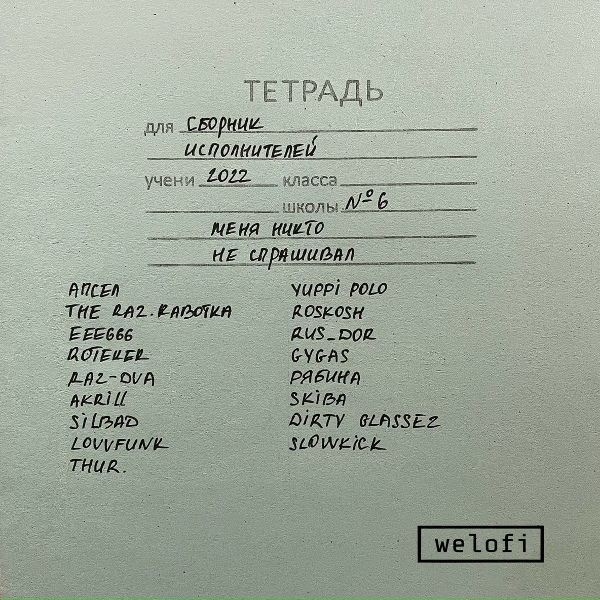 ТЕТРАДЬ
для СБОРНИК
ИСПОЛНИТЕЛЕЙ
учени 2022 класса
школы № 6
МЕНЯ НИКТО
НЕ СПРАШИВАЛ
АПСЕЛ
THE RAZ.RABOTKA
EEE666
ROTEKER
RAZ-DVA
AKRILL
SILBAD
LOVVFUNK
THUR.
YUPPI POLO
ROSKOSH
RUS_DOR
GYGAS
РЯБИНА
SKIBA
DIRTY GLASSEZ
SLOWKICK
welofi